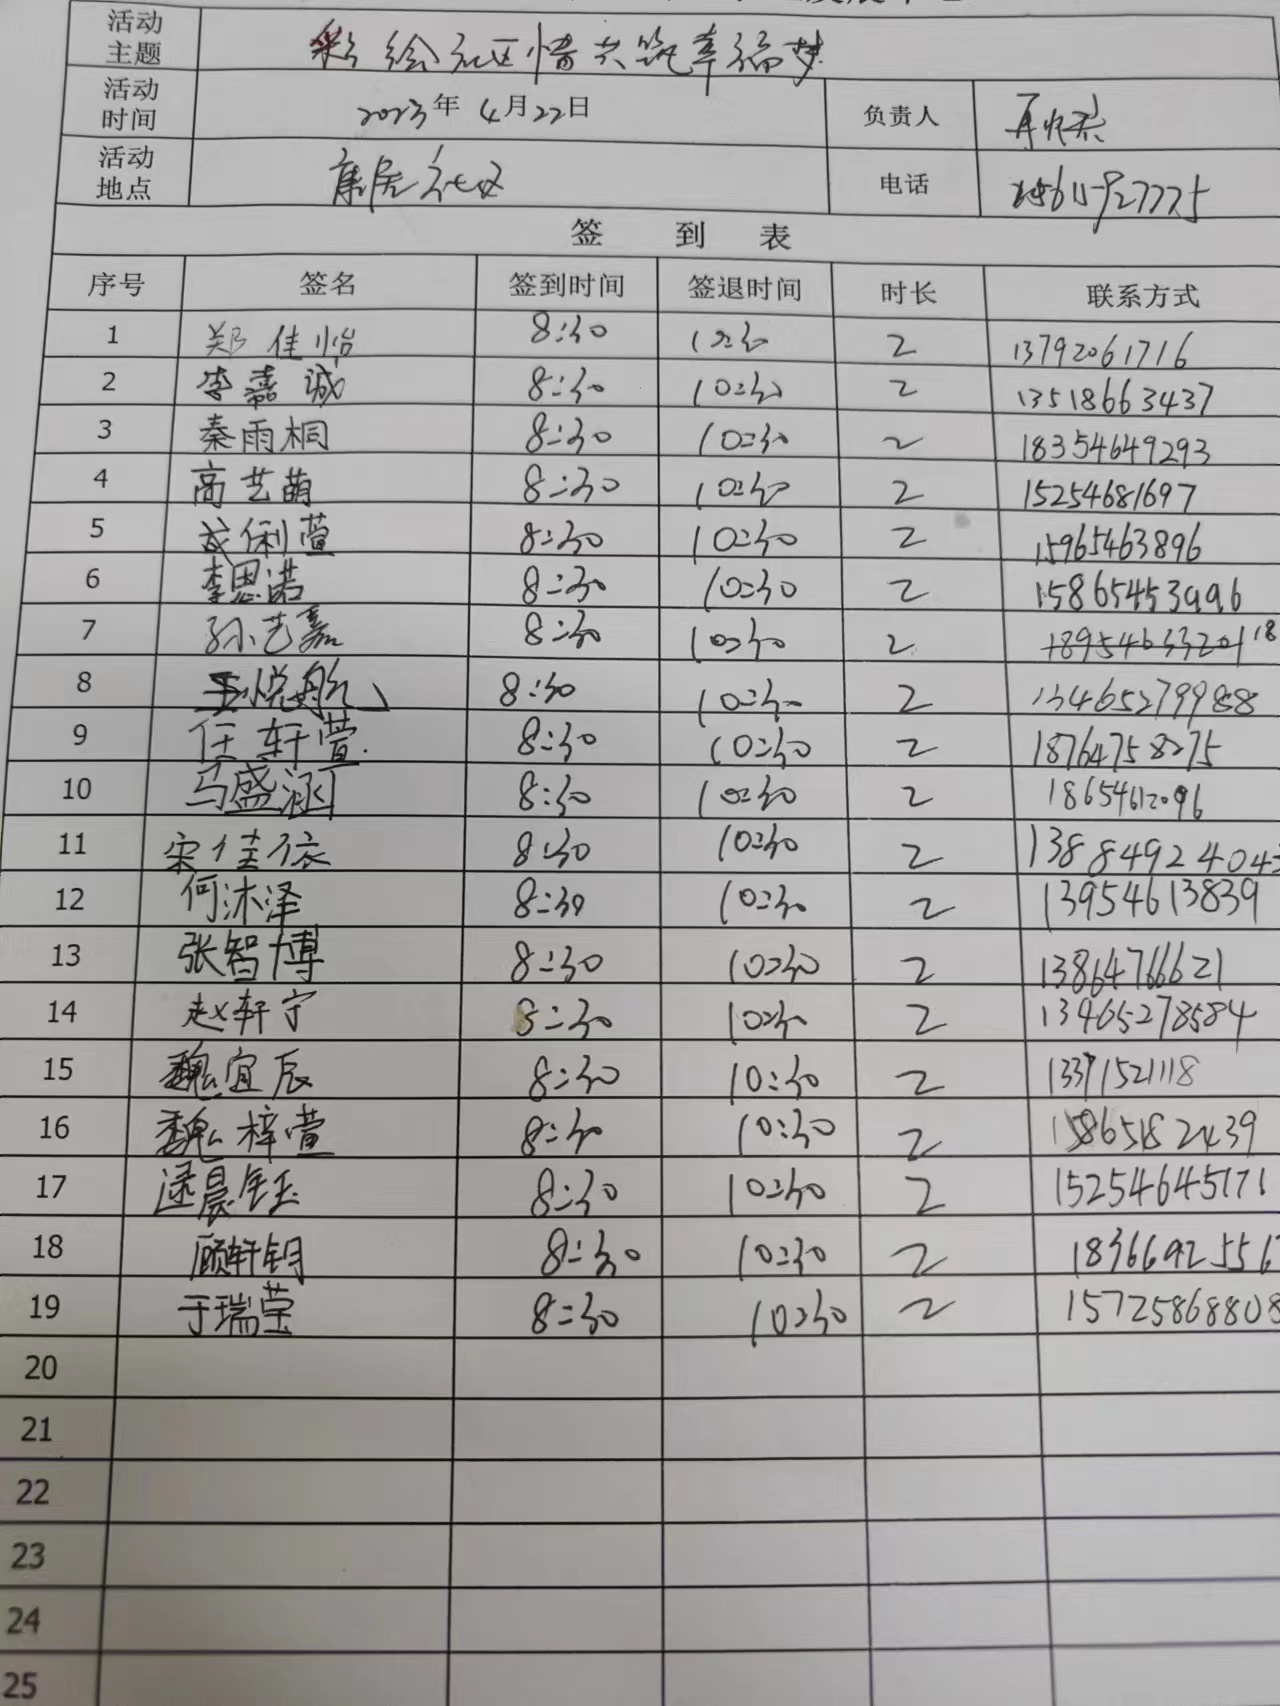 活动主题 彩绘社区情共筑幸福梦
活动时间 2023年 4月22日 负责人
活动地点 康居社区 电话 15615927775
签 到 表
序号 签名 签到时间 签退时间 时长 联系方式
1 郑佳怡 8:30 10:30 2 13792061716
2 李嘉诚 8:30 10:30 2 13518663437
3 秦雨桐 8:30 10:30 2 18354649293
4 高艺萌 8:30 10:30 2 15254681697
5 成俐萱 8:30 10:30 2 15965463896
6 李思诺 8:30 10:30 2 15865453996
7 孙艺嘉 8:30 10:30 2
8 王悦航 8:30 10:30 2
9 任轩萱 8:30 10:30 2 18764758275
10 马盛涵 8:30 10:30 2 18654612096
11 宋佳依 8:30 10:30 2 1388492404
12 何沐泽 8:30 10:30 2 13954613839
13 张智博 8:30 10:30 2 13864766621
14 赵轩宁 8:30 10:30 2 13465278584
15 魏宜辰 8:30 10:30 2 13371521118
16 魏梓萱 8:30 10:30 2 15865182439
17 逯晨钰 8:30 10:30 2 15254645171
18 顾轩钥 8:30 10:30 2 1836692556
19 于瑞莹 8:30 10:30 2 15725868808
20
21
22
23
24
25